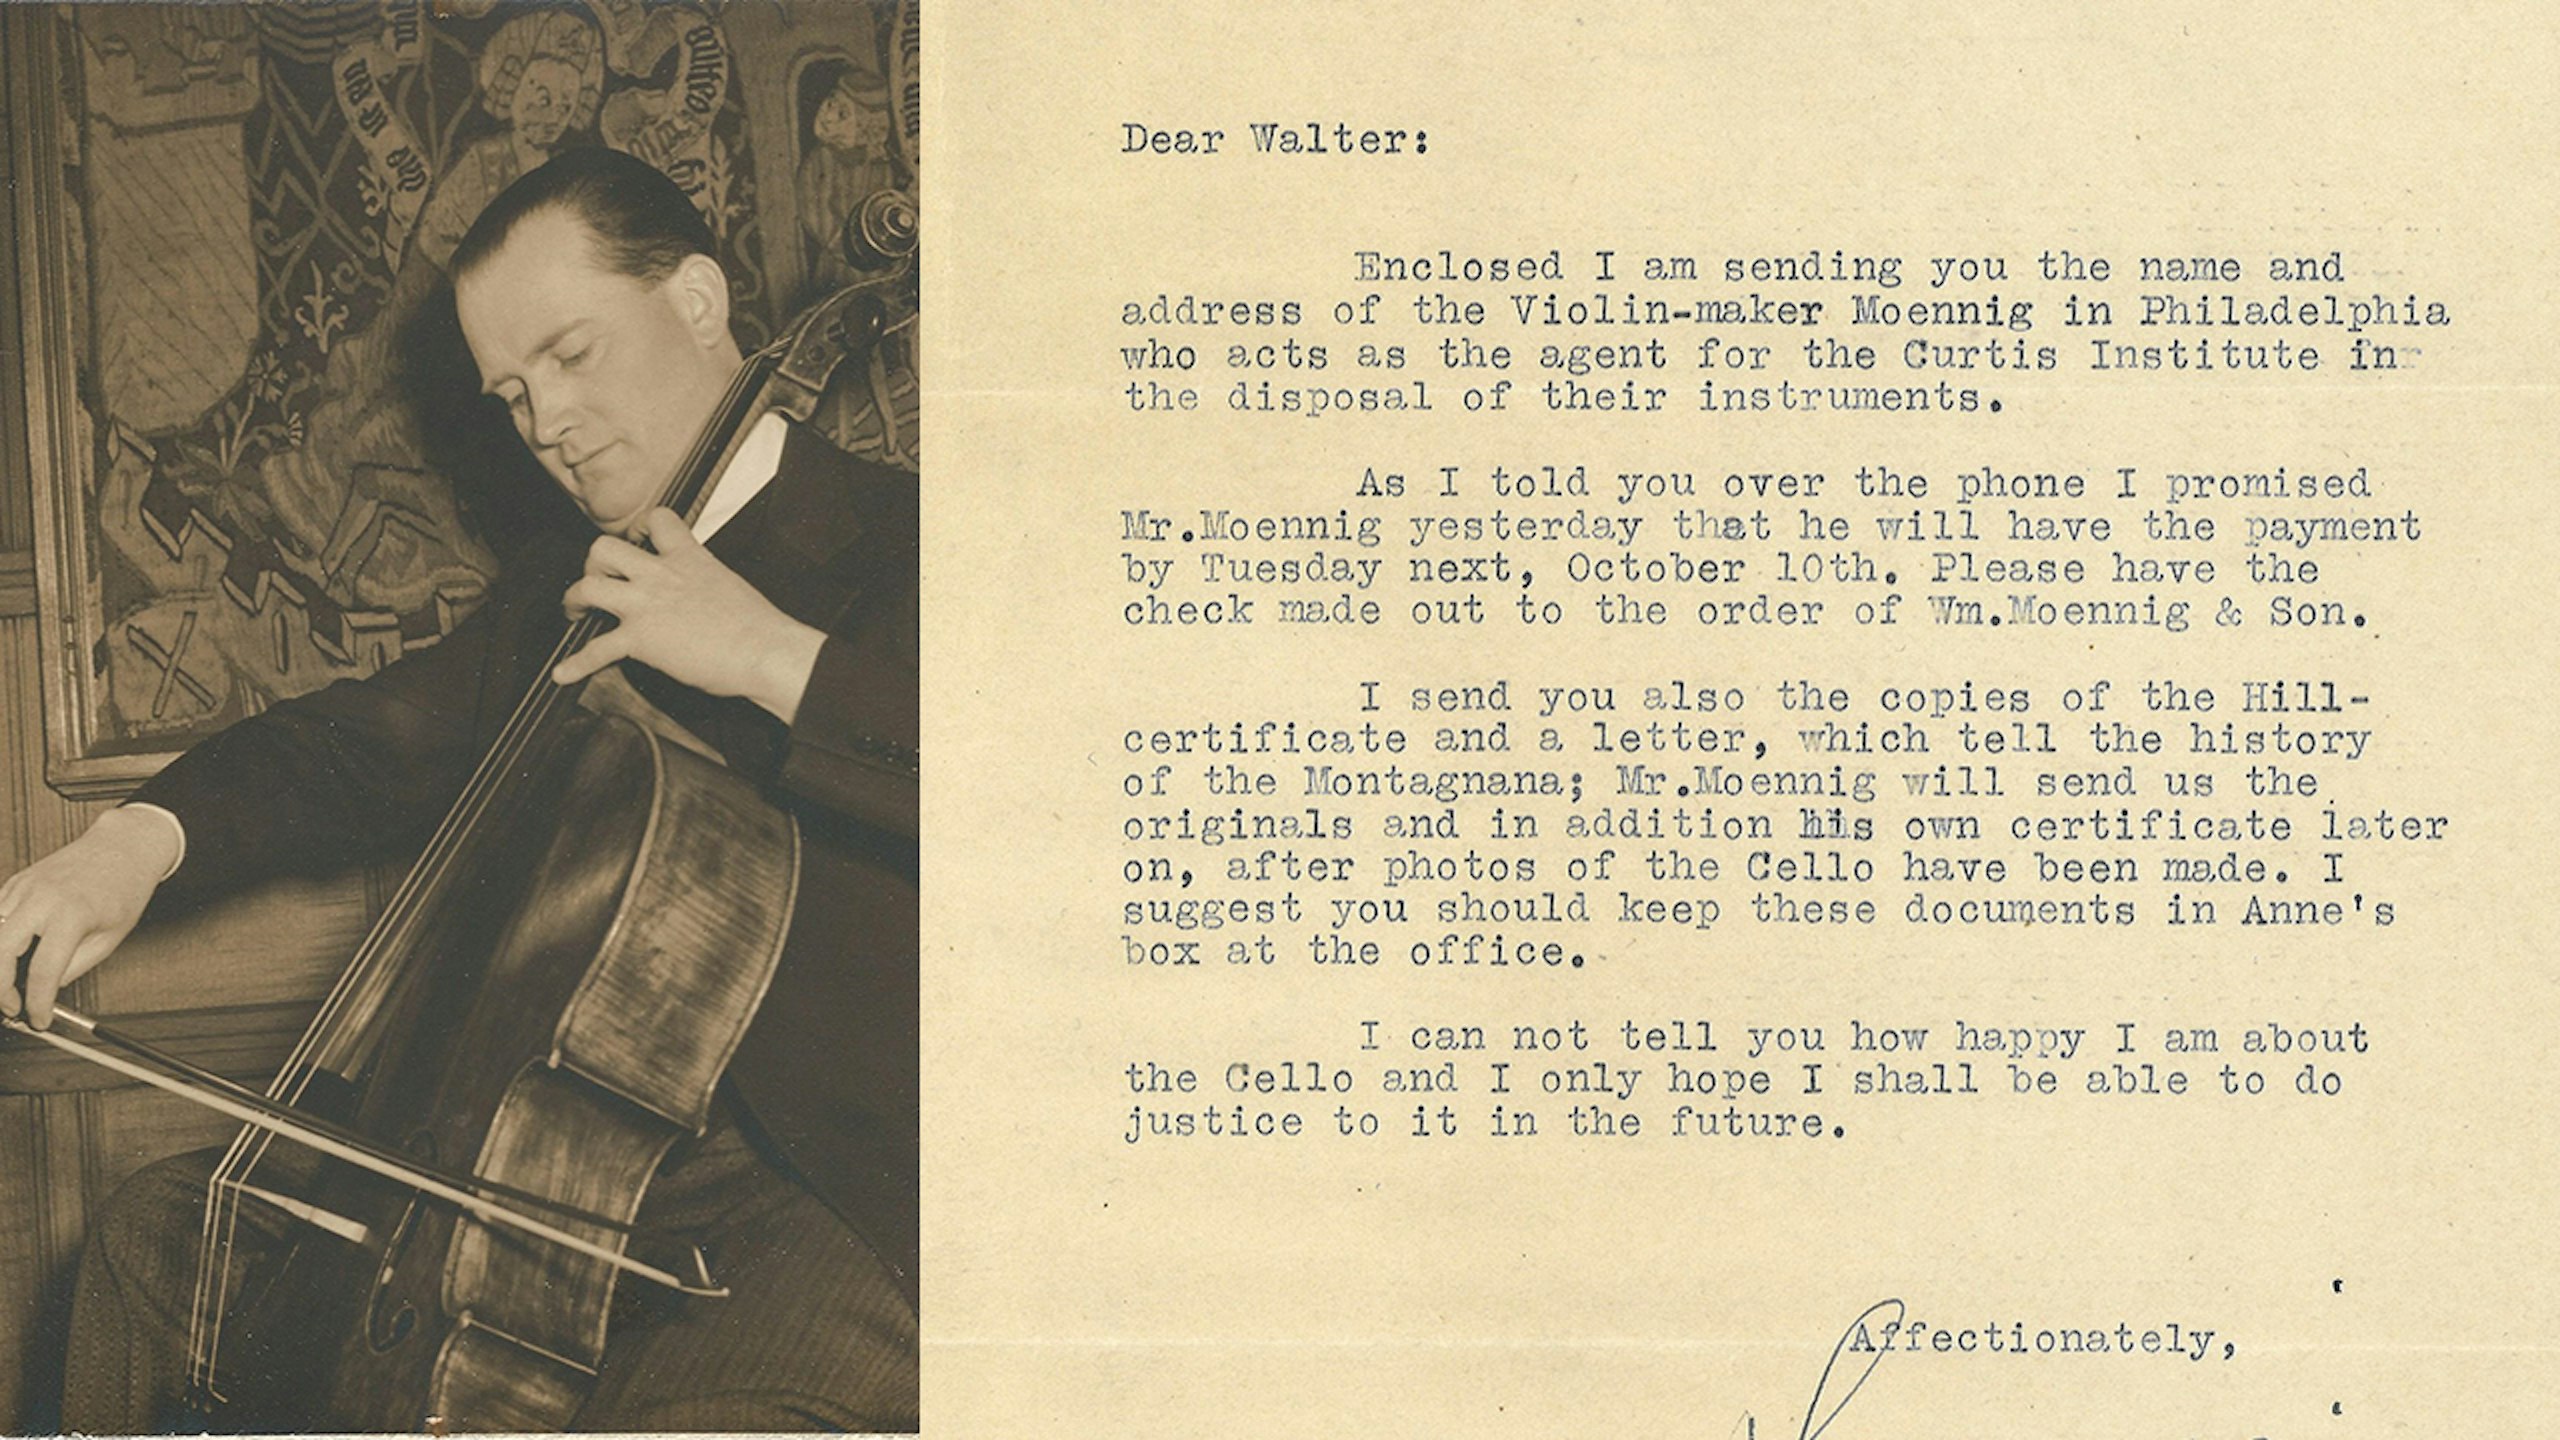 Dear Walter:
Enclosed I am sending you the name and
address of the Violin-maker Moennig in Philadelphia
who acts as the agent for the Curtis Institute in
the disposal of their instruments.
As I told you over the phone I promised
Mr.Moennig yesterday that he will have the payment
by Tuesday next, October 10th. Please have the
check made out to the order of Wm.Moennig & Son.
I send you also the copies of the Hill-
certificate and a letter, which tell the history
of the Montagnana; Mr.Moennig will send us the
originals and in addition his own certificate later
on, after photos of the Cello have been made. I
suggest you should keep these documents in Anne's
box at the office.
I can not tell you how happy I am about
the Cello and I only hope I shall be able to do
justice to it in the future.
Affectionately,